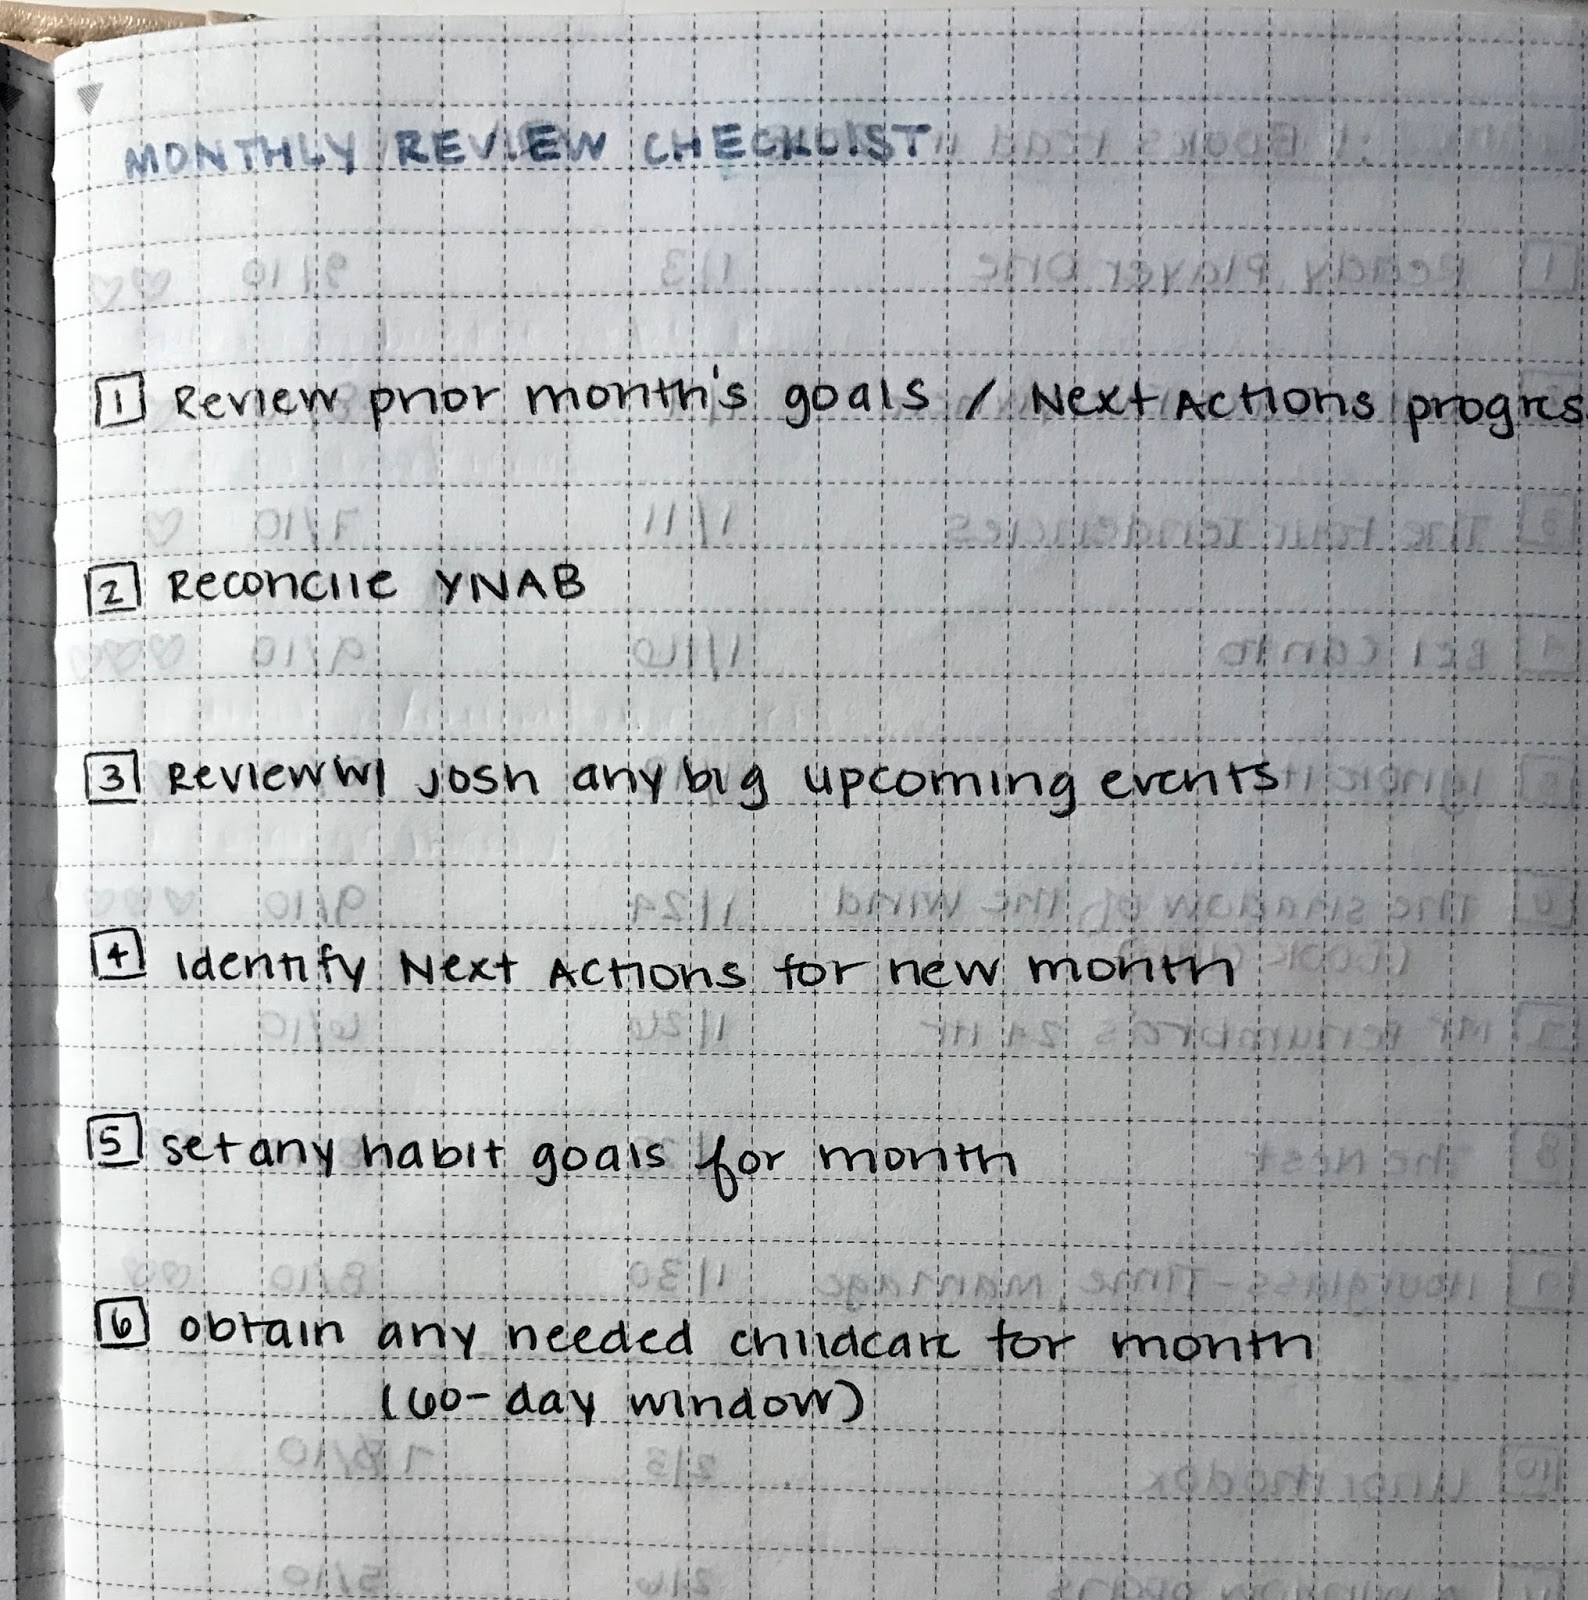 MONTHLY REVIEW CHECKLIST
1 Review prior month's goals / Next Actions progres
2 Reconcile YNAB
3 Review w/ Josh any big upcoming events
4 Identify Next Actions for new month
5 set any habit goals for month
6 obtain any needed childcare for month
(60-day window)